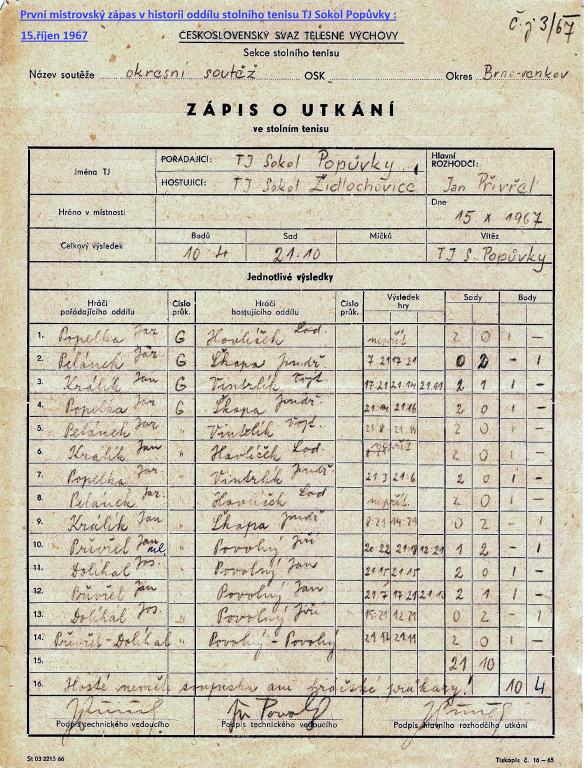 První mistrovský zápas v historii oddílu stolního tenisu TJ Sokol Popůvky :
15.říjen 1967
č.j 3/67
ČESKOSLOVENSKÝ SVAZ TĚLESNÉ VÝCHOVY
Sekce stolního tenisu
Název soutěže okresní soutěž OSK Okres Brno-venkov
ZÁPIS O UTKÁNÍ
ve stolním tenisu
Jména TJ POŘÁDAJÍCÍ: TJ Sokol Popůvky Hlavní ROZHODČÍ:
HOSTUJÍCÍ: TJ Sokol Židlochovice Jan Přivřel
Hráno v místnosti Dne 15 X 1967
Celkový výsledek Bodů Sad Míčků Vítěz
10 4 21·10 TJ S. Popůvky
Jednotlivé výsledky
Hráči pořádajícího oddílu Číslo průk. Hráči hostujícího oddílu Číslo průk. Výsledek hry Sady Body
1. Popelka Jar G Havlíček Lad. 2 0 1 –
2. Pelánek Jar G Škapa Jindř. 7·21 17·21 0 2 – 1
3. Králík Jan G Vintrlík Vojt. 17·21 21·14 21·11 2 1 1 –
4. Popelka Jar G Škapa Jindř. 21·14 21·16 2 0 1 –
5. Pelánek Jar " Vintrlík Vojt. 2 0 1 –
6. Králík Jan " Havlíček Lad. 2 0 1 –
7. Popelka Jar. " Vintrlík Jindř. 21·3 21·6 2 0 1 –
8. Pelánek Jar. " Havlíček Lad 2 0 1 –
9. Králík Jan " Škapa Jindř. 8·21 14·21 0 2 – 1
10. Přivřel Jan ml. " Povolný Jiří 20·22 21·18 12·21 1 2 – 1
11. Dolíhal Jos. " Povolný Jan 21·15 21·15 2 0 1 –
12. Přivřel Jan " Povolný Jan 21·7 17·21 21·10 2 1 1 –
13. Dolíhal Jos. " Povolný Jiří 15·21 12·21 0 2 – 1
14. Přivřel-Dolíhal Povolný-Povolný 21·17 21·11 2 0 1 –
15. 21 10
16. Hosté neměli soupisku ani hráčské průkazy! 10 4
Podpis technického vedoucího Podpis technického vedoucího Podpis hlavního rozhodčího utkání
St 03 2215 66 Tiskopis č. 16 – 65